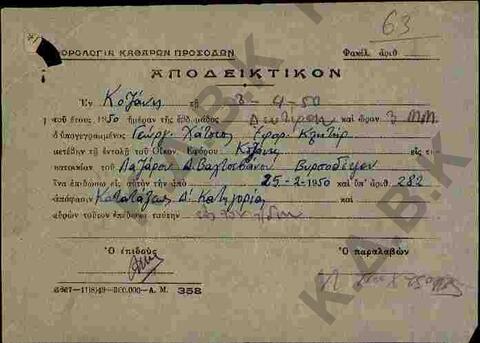 63
ΦΟΡΟΛΟΓΙΑ ΚΑΘΑΡΩΝ ΠΡΟΣΟΔΩΝ Φακελ. ἀριθ
ΑΠΟΔΕΙΚΤΙΚΟΝ
Ἐν Κοζάνῃ τῇ 3-4-50
τοῦ ἔτους 1950 ἡμέραν τῆς ἑβδομάδος Δευτέραν καὶ ὥραν 3 μ.μ.
ὁ ὑπογεγραμμένος Γεώργ. Χάτσιος Ἐφορ. Κλητὴρ
μετέβην τῇ ἐντολῇ τοῦ Οἰκον. Ἐφόρου Κοζάνης εἰς τὴν
κατοικίαν τοῦ Λαζάρου Δ. Βαλτσιάνου Βυρσοδέψου
ἵνα ἐπιδώσω εἰς αὐτὸν τὴν ἀπὸ 25-2-1950 καὶ ὑπ' ἀριθ. 282
ἀπόφασιν Κατατάξεως Δ' Κατηγορίας καὶ
εὑρὼν τοῦτον ἐπέδωσα ταύτην εἰς τὸν ἴδιον
Ὁ ἐπιδοὺς Ὁ παραλαβὼν
358
Κ.Δ.Β.Κ